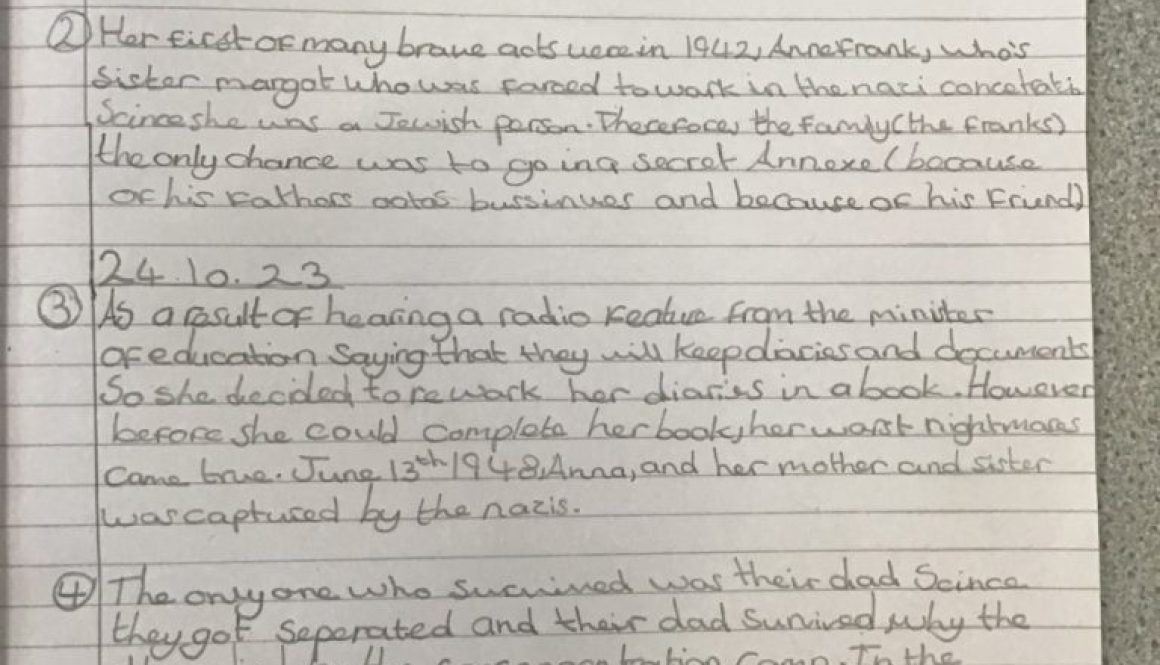 ② Her first of many brave acts were in 1942, Anne Frank, who's
sister margot who was forced to work in the nazi
Scince she was a Jewish person. Therefore, the family (the Franks)
the only chance was to go in a secret Annexe (because
of his Fathers bussinues and because of his Friend)
24.10.23
③ As a result of hearing a radio Featue from the minister
of education saying that they will keep diaries and documents
So she decided to rework her diaries in a book. However
before she could complete her book, her worst nightmares
came true. June 13th 1948, Anna, and her mother and sister
was captured by the nazis.
④ The only one who survived was their dad Scince
they got seperated and their dad survived why the
camp. In the